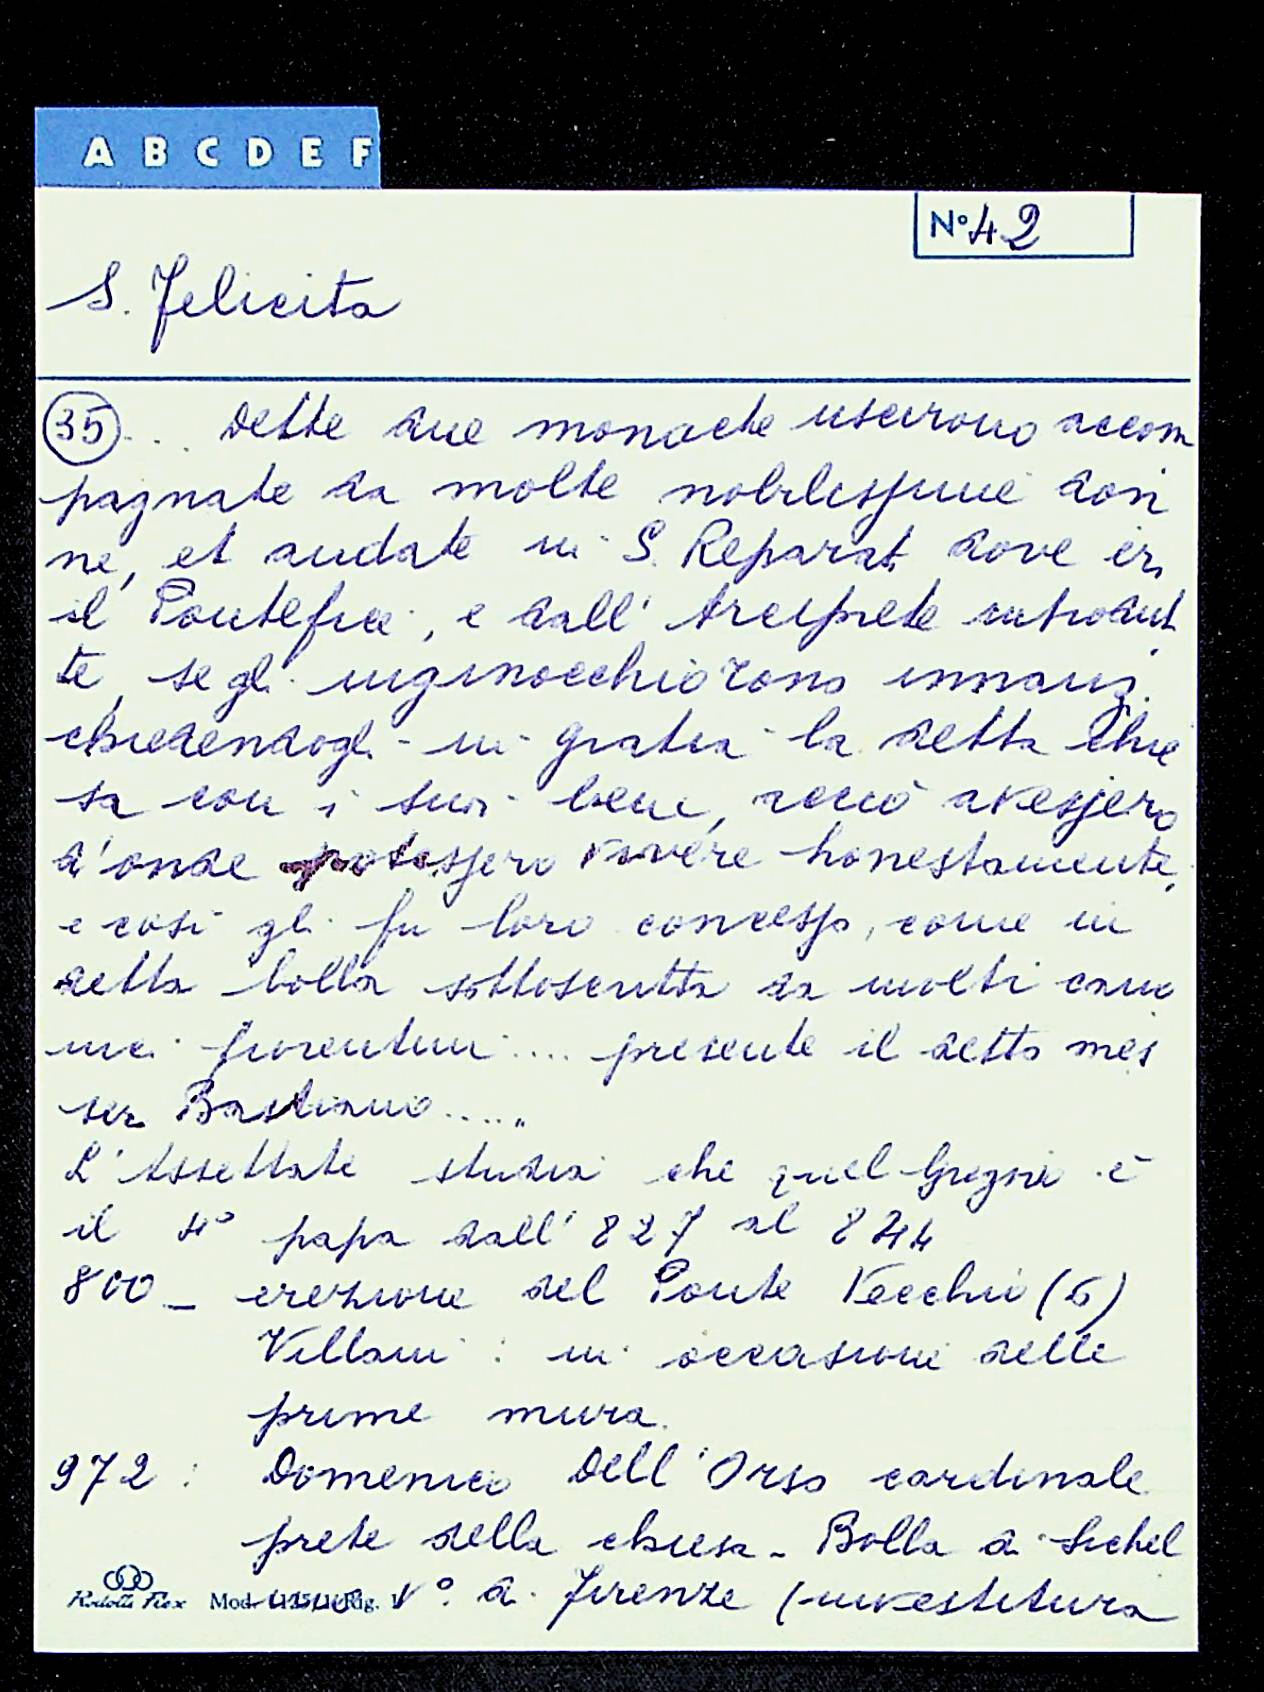 A B C D E F
N° 42
S. Felicita
35 ... Dette due monache uscirono accom
pagnate da molte nobilissime don
ne, et andate in S. Reparat. dove er.
il Pontefice, e dall' Arciprete introdut
te, se gli inginocchiorono innanz.
chiedendogli in gratia la detta chie
sa con i suoi beni, acciò avessero
d'onde potessero vivere honestamente,
e così gli fu loro concesso, come in
detta bolla sottoscritta da molti cano
nici fiorentini .... presente il detto mes
ser Bastiano ....."
L'Assettate studia che quel Gregorio è
il 4° papa dall' 827 al 844
800 - erezione del Ponte Vecchio (G)
Villani : in occasione delle
prime mura.
972 : Domenico Dell'Orso cardinale
prete della chiesa - Bolla di Sichel
V° di Firenze (investitura
Rodolfo Flex Mod.